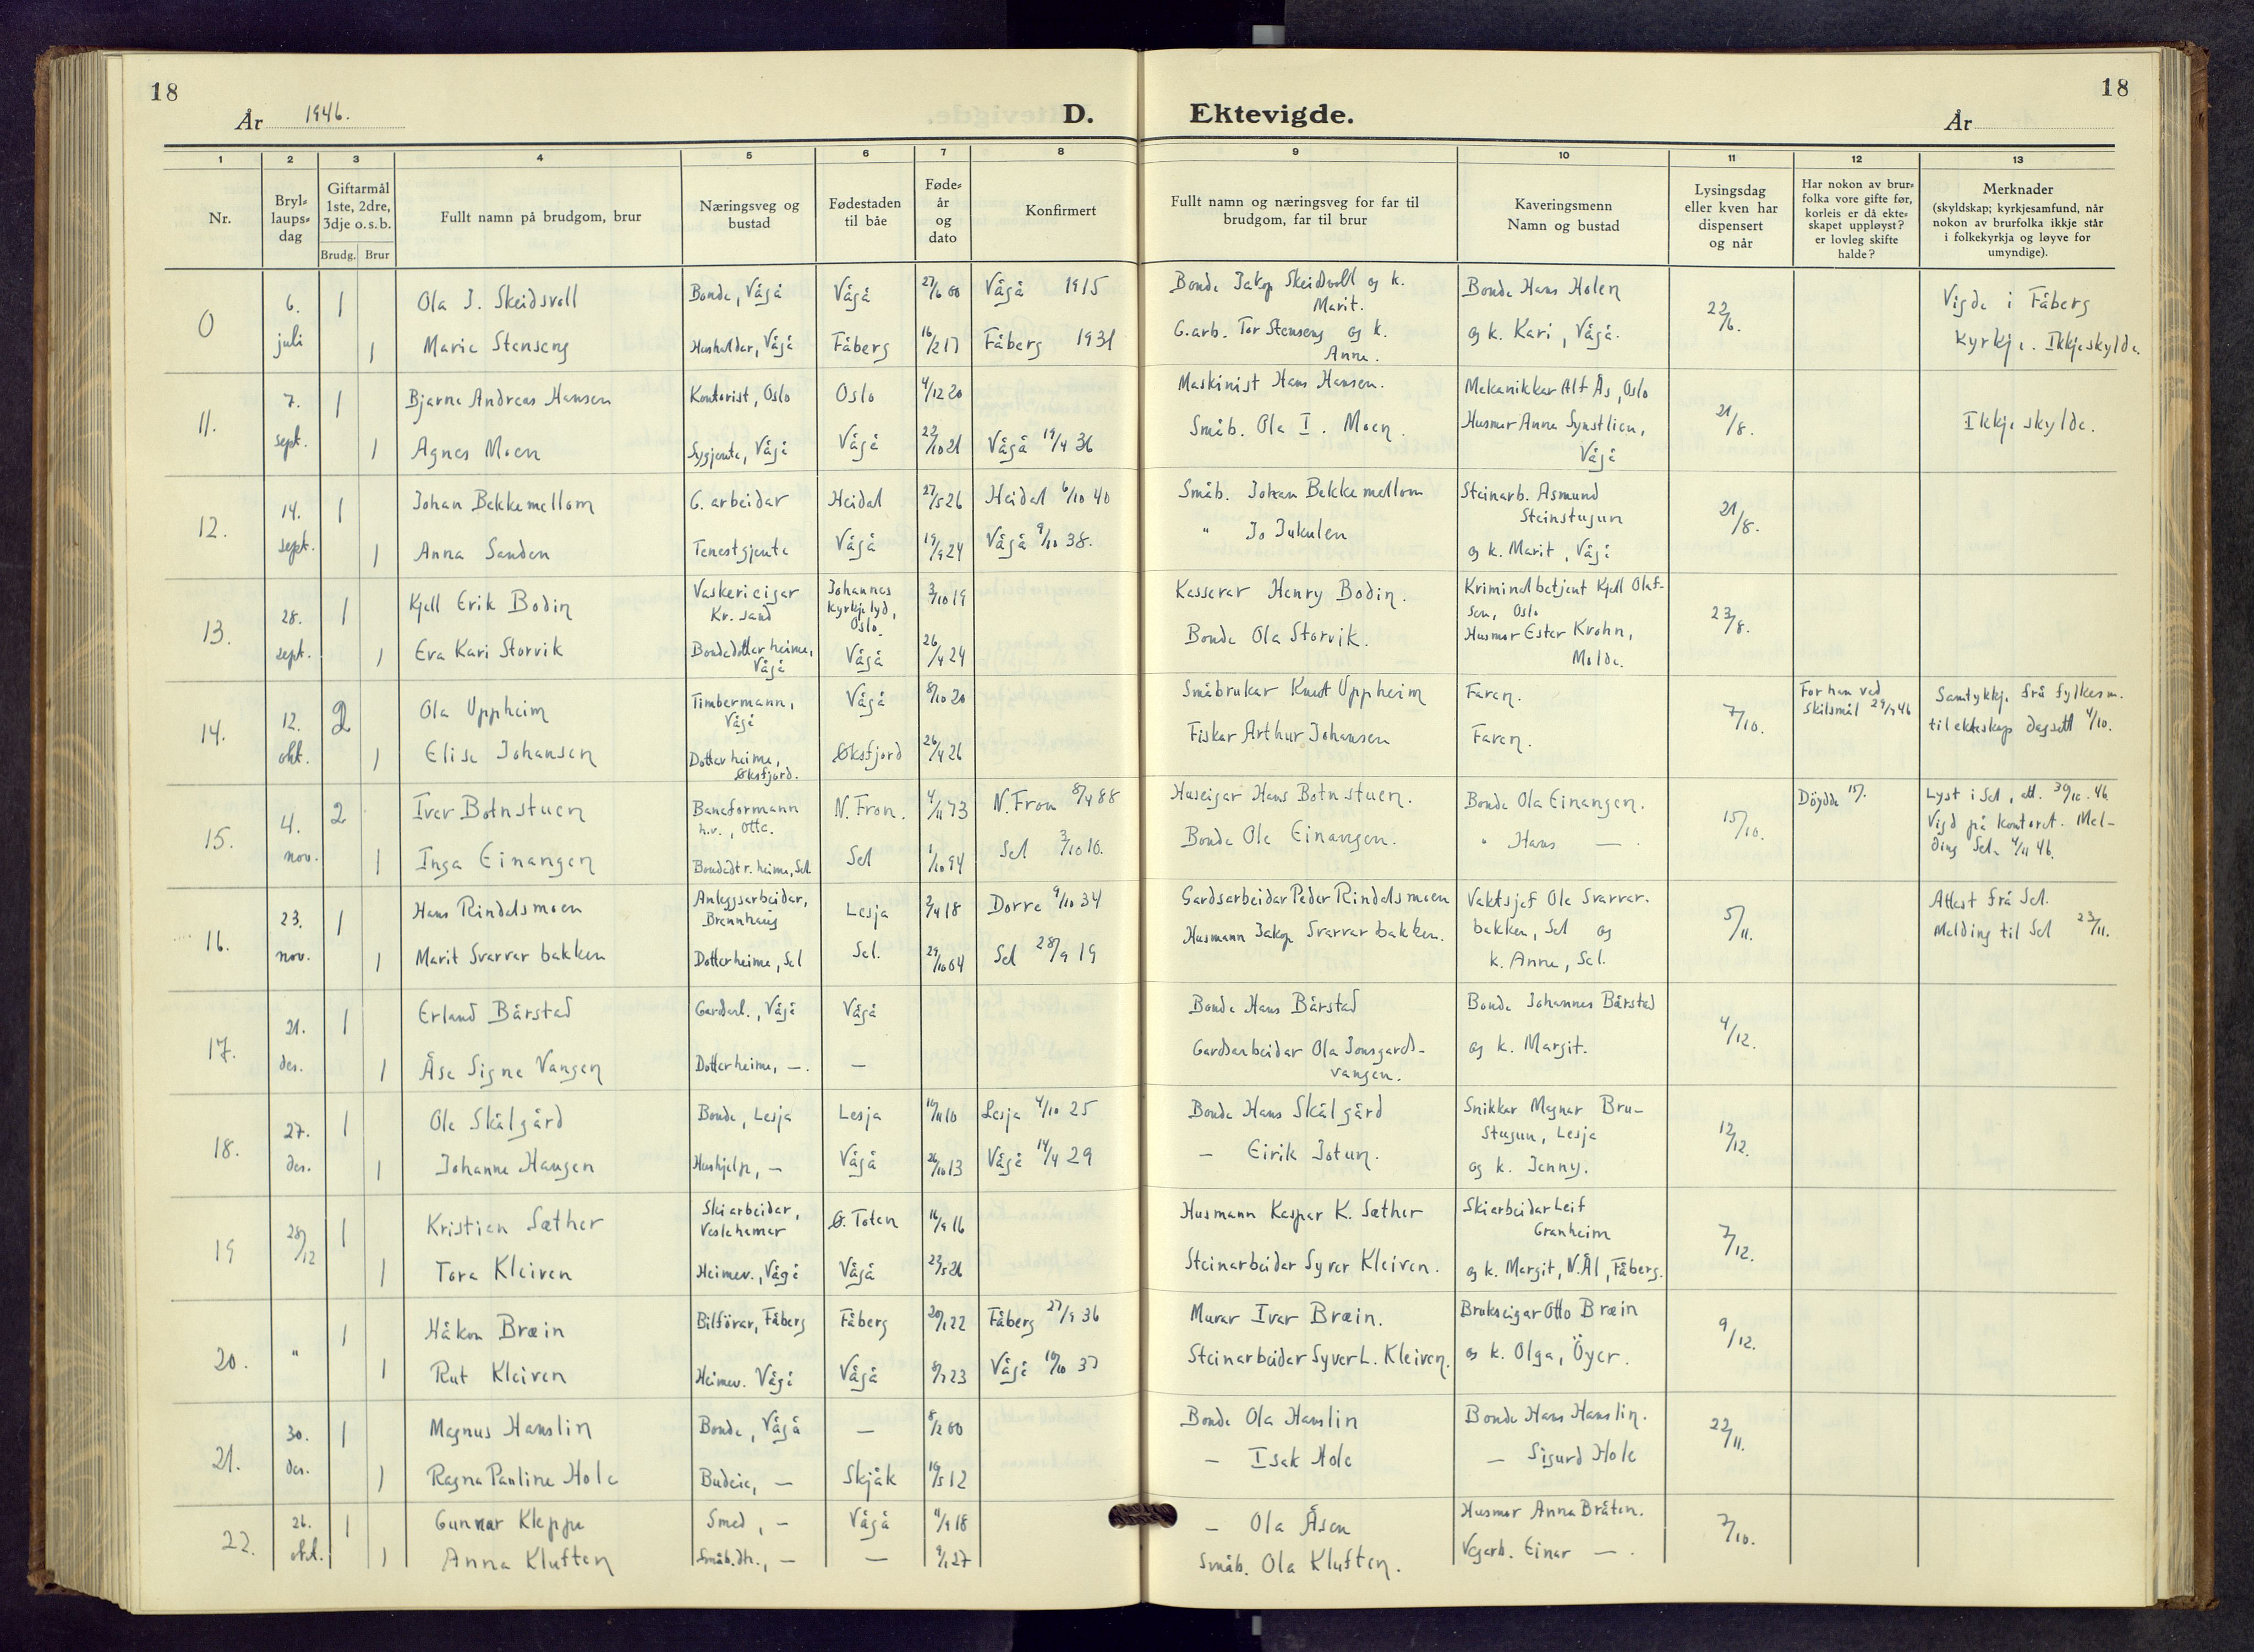 18
År 1946.
D.
Ektevigde.
År
18
1 2 3 4 5 6 7 8 9 10 11 12 13
Nr.
Bryllaupsdag
Giftarmål 1ste, 2dre, 3dje o.s.b.
Brudg. Brur
Fullt namn på brudgom, brur
Næringsveg og bustad
Fødestaden til båe
Føde-år og dato
Konfirmert
Fullt namn og næringsveg for far til brudgom, far til brur
Kaveringsmenn Namn og bustad
Lysingsdag eller kven har dispensert og når
Har nokon av brurfolka vore gifte før, korleis er då ekteskapet uppløyst? er lovleg skifte halde?
Merknader (skyldskap; kyrkjesamfund, når nokon av brurfolka ikkje står i folkekyrkja og løyve for umyndige).
0 6. juli 1 Ola J. Skeidsvoll Bonde, Vågå Vågå 27/6 00 Vågå 1915 Bonde Jakop Skeidsvoll og k. Marit. Bonde Hans Holen 22/6. Vigde i Fåberg
1 Marie Stenseng Hushaldar, Vågå Fåberg 16/2 17 Fåberg 1931 G.arb. Tor Stenseng og k. Anne. og k. Kari, Vågå. Kyrkje. Ikkje skylde.
11. 7. sept. 1 Bjarne Andreas Hansen Kontorist, Oslo Oslo 4/12 20 Maskinist Hans Hansen. Mekanikkar Alf Ås, Oslo 21/8. Ikkje skylde.
1 Agnes Moen Sygjente, Vågå Vågå 22/10 21 Vågå 19/4 36 Småb. Ola I. Moen. Husmor Anna Synstlien, Vågå
12. 14. sept. 1 Johan Bekkemellom G. arbeidar Heidal 27/5 26 Heidal 6/10 40 Småb. Johan Bekkemellom Steinarb. Asmund Steinstugun 21/8.
1 Anna Sanden Tenestgjente Vågå 19/9 24 Vågå 9/10 38. " Jo Jukulen og k. Marit, Vågå
13. 28. sept. 1 Kjell Erik Bodin Vaskerieigar Kr. sand Johannes kyrkjelyd, Oslo. 3/10 19 Kasserar Henry Bodin. Kriminalbetjent Kjell Olafsen, Oslo 23/8.
1 Eva Kari Storvik Bondedotter heime, Vågå Vågå 26/4 24 Bonde Ola Storvik. Husmor Ester Krohn, Molde.
14. 12. okt. 2 Ola Uppheim Timbermann, Vågå Vågå 8/10 20 Småbrukar Knut Uppheim Faren. 7/10. For han ved skilsmål 29/9 46 Samtykkj. frå fylkesm. til ekteskap dagsett 4/10.
1 Elise Johansen Dotter heime, Øksfjord. Øksfjord 26/4 26 Fiskar Arthur Johansen Faren.
15. 4. nov. 2 Iver Botnstuen Baneformann h.v., Otta. N. Fron. 4/11 73 N. Fron 8/4 88 Huseigar Hans Botnstuen. Bonde Ola Einangen. 15/10. Döydde Lyst i Sel, att. 30/10. 46.
1 Inga Einangen Bondedtr. heime, Sel. Sel 1/10 94 Sel 3/10 10. Bonde Ole Einangen. " Hans — . Vigd på kontoret. Melding Sel. 4/11 46.
16. 23. nov. 1 Hans Rindalsmoen Anleggsarbeidar, Brennhaug Lesja 2/4 18 Dovre 9/10 34 Gardsarbeidar Peder Rindalsmoen Vaktsjef Ole Svarvarbakken, Sel og 5/11. Attest frå Sel.
1 Marit Svarvarbakken Dotter heime, Sel Sel. 29/10 04 Sel 28/9 19 Husmann Jakop Svarvarbakken. k. Anne, Sel. Melding til Sel 23/11.
17. 21. des. 1 Erland Bårstad Gardarb., Vågå Vågå Bonde Hans Bårstad Bonde Johannes Bårstad 4/12.
1 Åse Signe Vangen Dotter heime, —. — Gardsarbeidar Ola Jonsgardsvangen. og k. Margit.
18. 27. des. 1 Ola Skålgård Bonde, Lesja Lesja 16/11 10 Lesja 4/10 25 Bonde Hans Skålgård Snikkar Magnar Brustugun, Lesja 12/12.
1 Johanne Haugen Hushjelp, — Vågå 26/10 13 Vågå 14/4 29 — Eirik Jotun. og k. Jenny.
19 28/12 1 Kristian Sæther Skiarbeidar, Veslehamar Ø. Toten 16/9 16 Husmann Kaspar K. Sæther Skiarbeidar Leif Granheim 7/12.
1 Tora Kleiven Heimev., Vågå Vågå 22/5 26 Steinarbeidar Syver Kleiven. og k. Margit, N. Ål, Fåberg.
20. " 1 Håkon Bræin Bilförar, Fåberg Fåberg 20/1 22 Fåberg 27/9 36 Murar Ivar Bræin. Brukseigar Otto Bræin 9/12.
1 Rut Kleiven Heimev. Vågå Vågå 8/7 23 Vågå 10/10 37 Steinarbeidar Syver L. Kleiven. og k. Olga, Öyer.
21. 30. des. 1 Magnus Hanslin Bonde, Vågå — 8/2 00 Bonde Ola Hanslin Bonde Hans Hanslin. 22/11.
1 Ragna Pauline Hole Budeie, — Skjåk 19/5 12 — Isak Hole — Sigurd Hole
22. 26. okt. 1 Gunnar Kleppe Smed, — Vågå 11/9 18 — Ola Åsen Husmor Anna Bråten. 7/10.
1 Anna Kluften Småb.dtr., — — 9/1 27 Småb. Ola Kluften. Vegarb. Einar — .